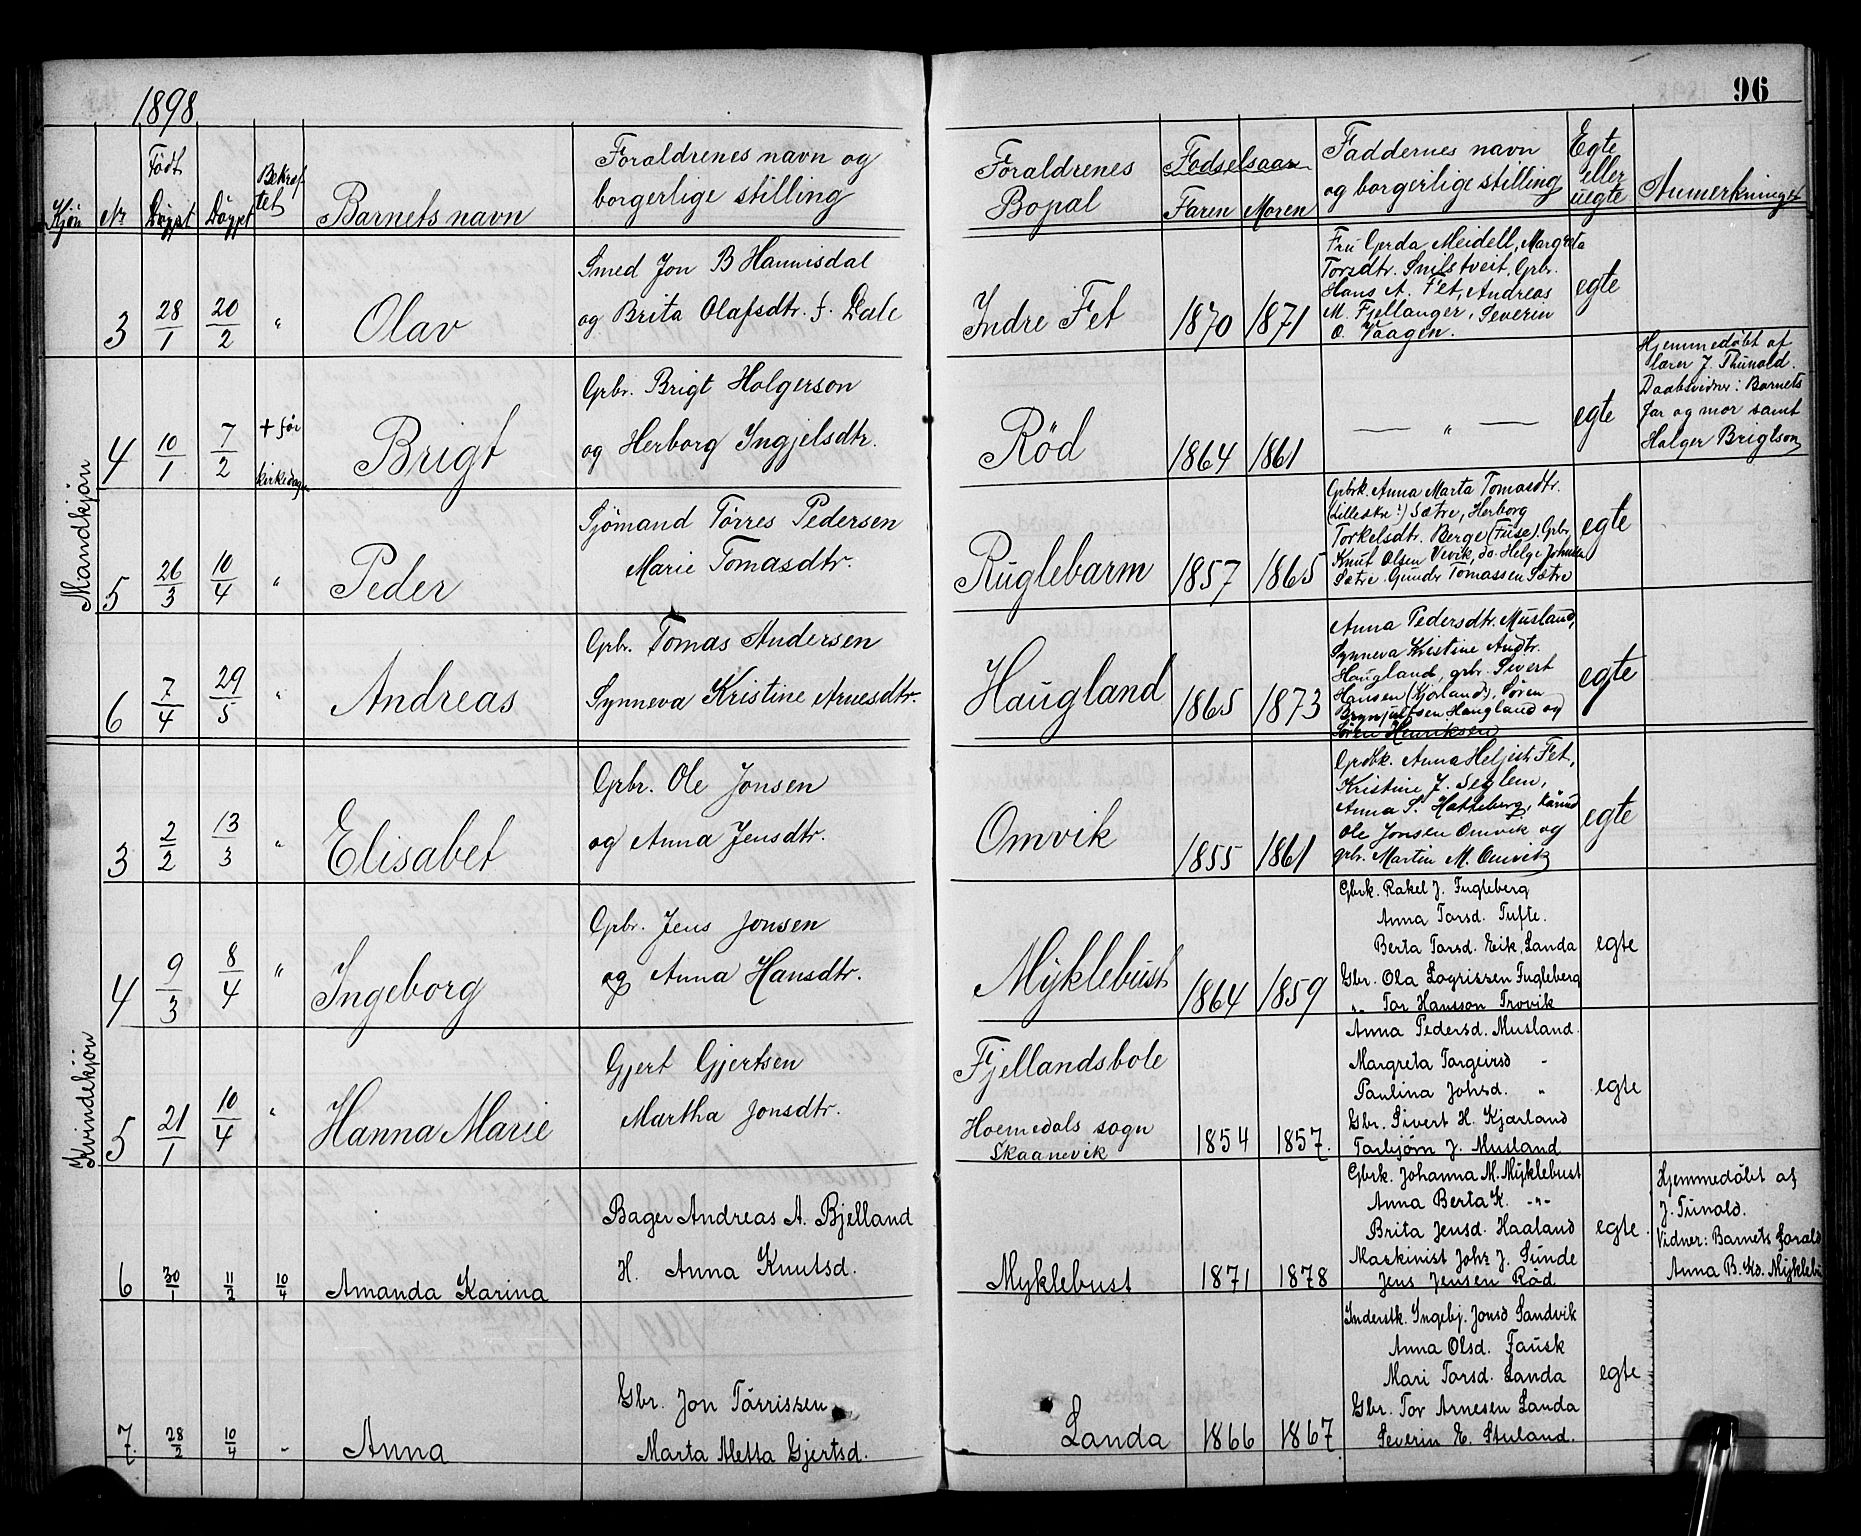 1898
96
Kjön
Nr
Födt
Döypt
Döypt
Bekræf-
tet
Barnets navn
Foraldrenes navn og
borgerlige stilling
Foraldrenes
Bopal
Födselsaar
Faren Moren
Faddernes navn
og borgerlige stilling
Egte
eller
uegte
Anmerkninger
Mandkjön
3 28/1 20/2 " Olav
Smed Jon B Hannisdal
og Brita Olafsdtr. f. Dale
Indre Fet 1870 1871
Fru Gerda Meidell, Margreta
Torsdtr. Snilstveit, Grbr.
Hans A. Fet, Andreas
M. Fjellanger, Severin
O. Vaagen.
egte
4 10/1 7/2 + för
kirkedagen
Brigt
Grbr. Brigt Holgerson
og Herborg Ingjelsdtr.
Röd 1864 1861
— " —
egte
Hjemmedöbt af
lærer J. Thunold.
Daabsvidner: Barnets
far og mor samt
Halger Brigtson
5 26/3 10/4 " Peder
Sjömand Törres Pedersen
Marie Tomasdtr.
Ruglebarm 1857 1865
Gbrk. Anna Marta Tomasdtr.
Sætre, Herborg
Torkelsdtr. Berge (Fuse). Grbr.
Knut Olsen Vevik, do. Helge Johnsen
Sætre. Gunder Tomassen Sætre
egte
6 7/4 29/5 " Andreas
Grbr. Tomas Andersen
Synneva Kristine Arnesdtr.
Haugland 1865 1873
Anna Pedersdtr. Musland,
Synneva Kristine Andtr.
Haugland, grbr. Sivert
Hansen (Kjærland), Sören
Brynjulfsen Haugland og
Sören Henriksen
egte
Kvindekjön
3 2/2 13/3 " Elisabet
Grbr. Ole Jonsen
og Anna Jensdtr.
Omvik 1855 1861
Grdbk. Anna Heljesdtr. Fet,
Kristine J. Seglem,
Anna S. Hatteberg,
Ole Jonsen Omvik og
grbr. Martin M. Omvik
egte
4 9/3 8/4 " Ingeborg
Grbr. Jens Jonsen
og Anna Hansdtr.
Myklebust 1864 1859
Gbrk. Rakel J. Fugleberg
Anna Torsd. Tufte.
Berta Torsd. Eik, Landa
Gbr. Ola Logrissen Fugleberg
" Tor Hansson Trovik
egte
5 21/1 10/4 " Hanna Marie
Gjert Gjertsen
Martha Jonsdtr.
Fjellandsbole
Hoemedals sogn
Skaanevik
1854 1857.
Anna Pedersd. Musland.
Margreta Torgeirsd "
Paulina Johsd. "
Gbr. Sivert H. Kjærland
Torbjørn J. Musland
egte
6 30/1 11/2 10/4 Amanda Karina
Bager Andreas A. Bjelland
H. Anna Knutsd.
Myklebust 1871 1878
Gbrk. Johanna M. Myklebust
Anna Berta K. -"-
Brita Jensd. Haaland
Maskinist Johs J. Sunde
Jens Jensen Röd
egte
Hjemmedöbt af
J. Tunold.
Vidner: Barnets forald
Anna B. Kd. Myklebu
7. 28/2 10/4 " Anna
Gbr. Jon Törrissen
Marta Metta Gjertsd.
Landa 1866 1867
Inderstk. Ingebj. Jonsd Sandvik
Anna Olsd. Fausk
Mari Torsd. Landa
Gbr. Tor Arnesen Landa
Severin E. Stuland.
egte